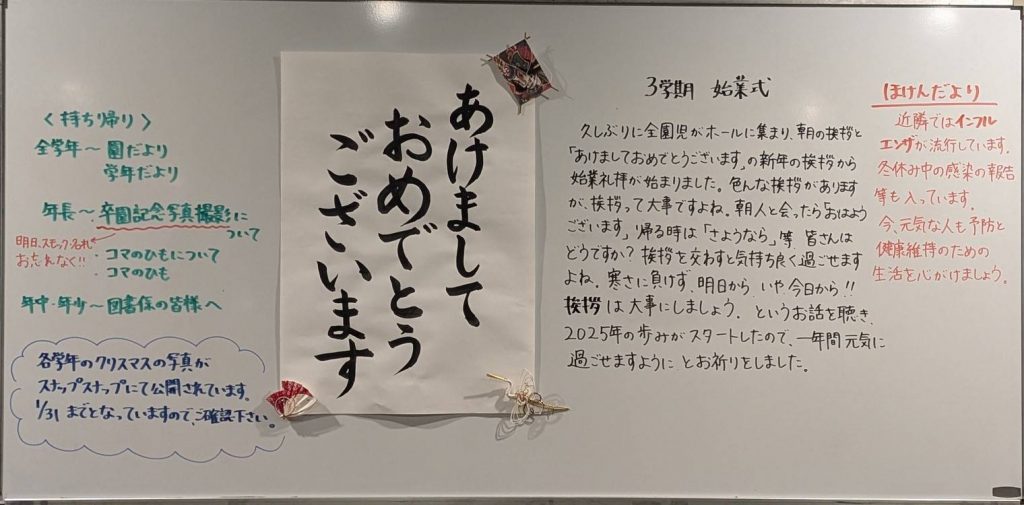 <持ち帰り>
全学年〜園だより
学年だより
年長〜卒園記念写真撮影に
ついて
明日、スモック・名札
お忘れなく!!
・コマのひもについて
・コマのひも
年中・年少〜図書係の皆様へ
各学年のクリスマスの写真が
スナップスナップにて公開されています。
1/31までとなっていますので、ご確認下さい。
あけまして
おめでとう
ございます
3学期 始業式
久しぶりに全園児がホールに集まり、朝の挨拶と
「あけましておめでとうございます」の新年の挨拶から
始業礼拝が始まりました。色んな挨拶があります
が、挨拶って大事ですよね。朝人と会ったら「おはよう
ございます」帰る時は「さようなら」等、皆さんは
どうですか?挨拶を交わすと気持ち良く過ごせます
よね。寒さに負けず、明日から、いや今日から!!
挨拶は大事にしましょう。というお話を聴き、
2025年の歩みがスタートしたので、一年間元気に
過ごせますようにとお祈りをしました。
ほけんだより
近隣ではインフル
エンザが流行しています。
冬休み中の感染の報告
等も入っています。
今、元気な人も予防と
健康維持のための
生活を心がけましょう。